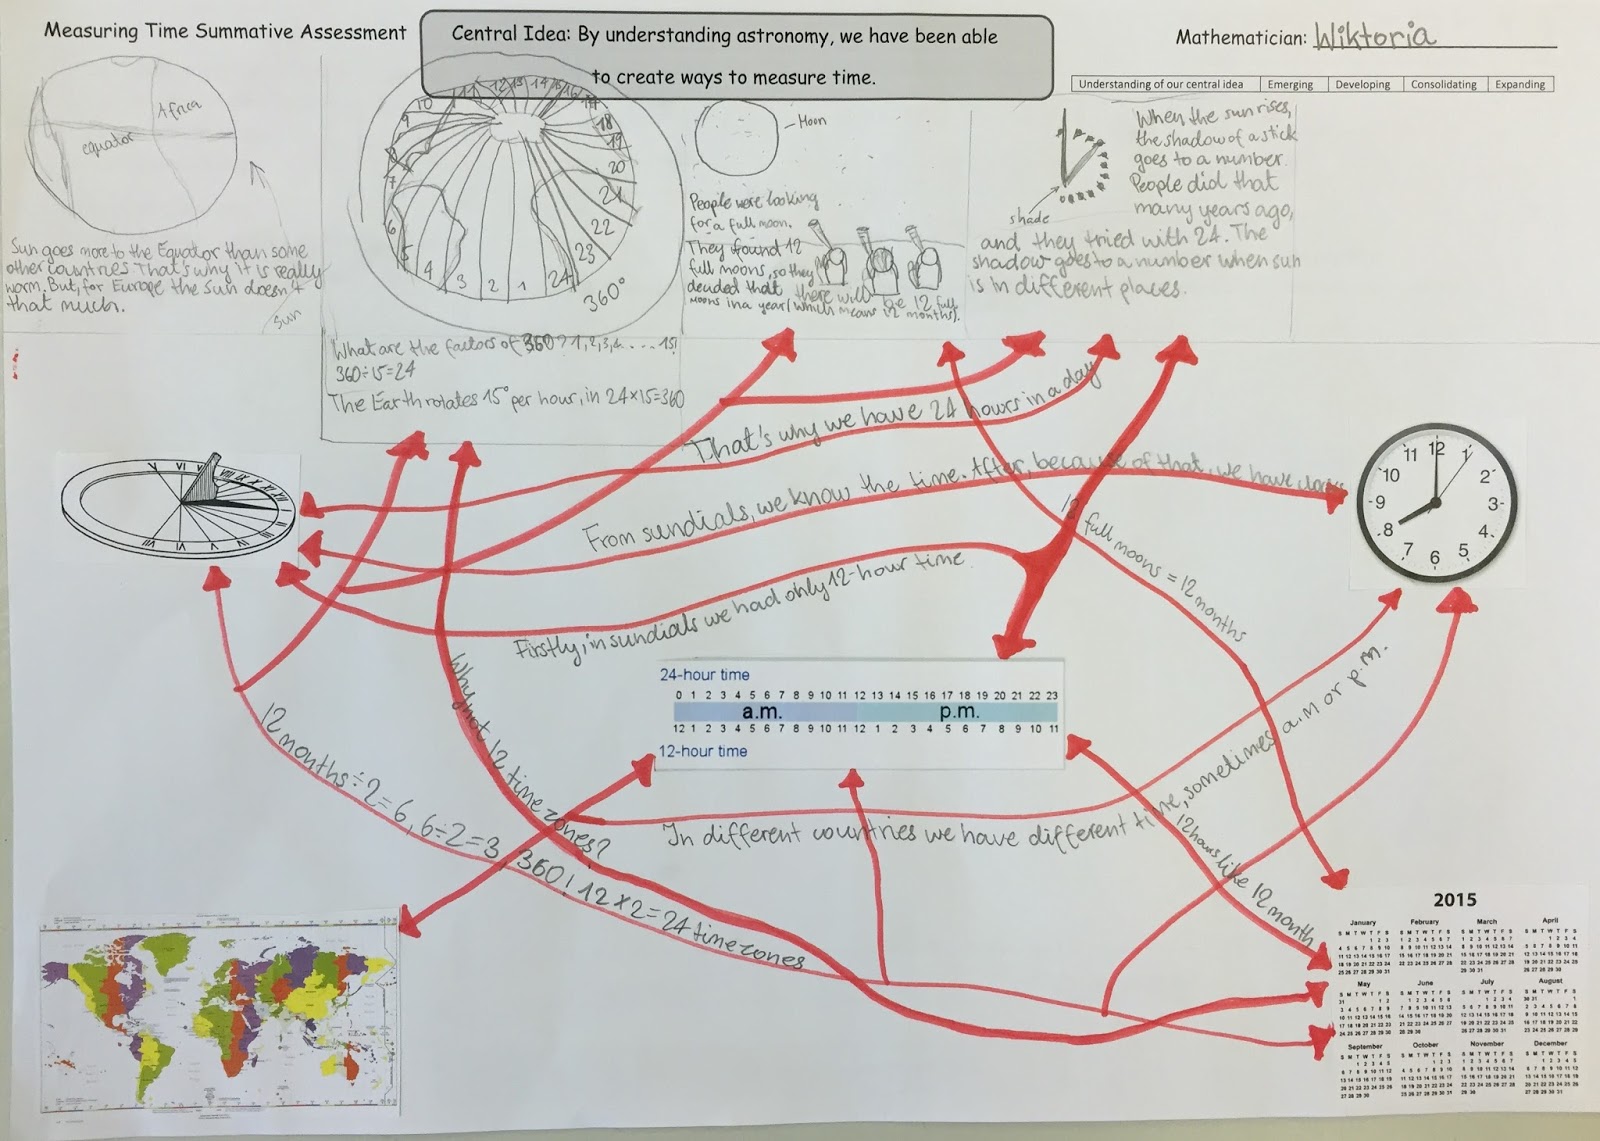 Measuring Time Summative Assessment
Central Idea: By understanding astronomy, we have been able
to create ways to measure time.
Mathematician: Wiktoria
Understanding of our central idea Emerging Developing Consolidating Expanding
Africa
equator
Sun goes more to the Equator than some
other countries. That's why it is really
warm. But, for Europe the sun doesn't
that much.
Sun
10 11 12 13 14 15 16 17
9
8
7
6
5
4
3
2
1
24
23
22
21
20
19
18
360°
What are the factors of 360? 1,2,3,4.....15!
360÷15=24
The Earth rotates 15° per hour, in 24×15=360
Moon
People were looking
for a full moon.
They found 12
full moons, so they
decided that there will be 12 full
moons in a year (which means 12 months).
shade
When the sun rises,
the shadow of a stick
goes to a number.
People did that
many years ago,
and they tried with 24. The
shadow goes to a number when sun
is in different places.
That's why we have 24 hours in a day
From sundials, we know the time. After, because of that, we have clocks
Firstly, in sundials we had only 12-hour time
12 full moons = 12 months
Why not 12 time zones?
12 months÷2=6, 6÷2=3, 360! 12×2=24 time zones
In different countries we have different time, sometimes a.m or p.m.
12 hours like 12 month
11 12 1
10 2
9 3
8 4
7 6 5
24-hour time
0 1 2 3 4 5 6 7 8 9 10 11 12 13 14 15 16 17 18 19 20 21 22 23
a.m. p.m.
12 1 2 3 4 5 6 7 8 9 10 11 12 1 2 3 4 5 6 7 8 9 10 11
12-hour time
2015
January February March April
May June July August
September October November December